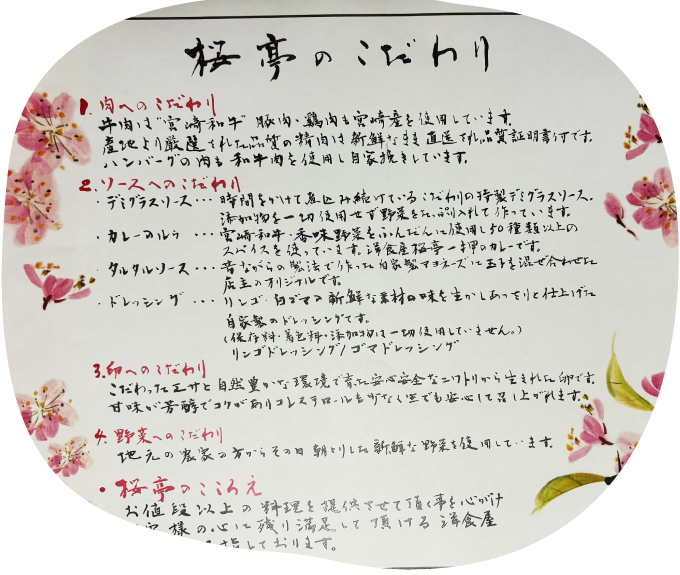 桜亭のこだわり
1.肉へのこだわり
牛肉は"宮崎和牛" 豚肉・鶏肉も宮崎産を使用しています。
産地より厳選された品質の精肉は新鮮なまま直送され品質証明書付です。
ハンバーグの肉も和牛肉を使用し自家挽きしています。
2.ソースへのこだわり
・デミグラスソース・・・時間をかけて煮込み続けているこだわりの特製デミグラスソース。
添加物を一切使用せず野菜をたっぷり入れて作っています。
・カレールゥ・・・宮崎和牛・香味野菜をふんだんに使用し50種類以上の
スパイスを使っています。洋食屋桜亭一押のカレーです。
・タルタルソース・・・昔ながらの製法で作った自家製マヨネーズに玉子を混ぜ合わせた
店主のオリジナルです。
・ドレッシング・・・リンゴ・白ゴマの新鮮な素材の味を生かしあっさりと仕上げた
自家製のドレッシングです。
(保存料・着色料・添加物は一切使用していません。)
リンゴドレッシング/ゴマドレッシング
3.卵へのこだわり
こだわったエサと自然豊かな環境で育った安心安全なニワトリから生まれた卵です。
甘味が芳醇でコクがありコレステロールも少なく生でも安心して召し上がれます。
4.野菜へのこだわり
地元の農家の方からその日朝とりした新鮮な野菜を使用しています。
・桜亭のこころえ
お値段以上の料理を提供させて頂く事を心がけ
客様の心に残り満足して頂ける洋食屋
指しております。